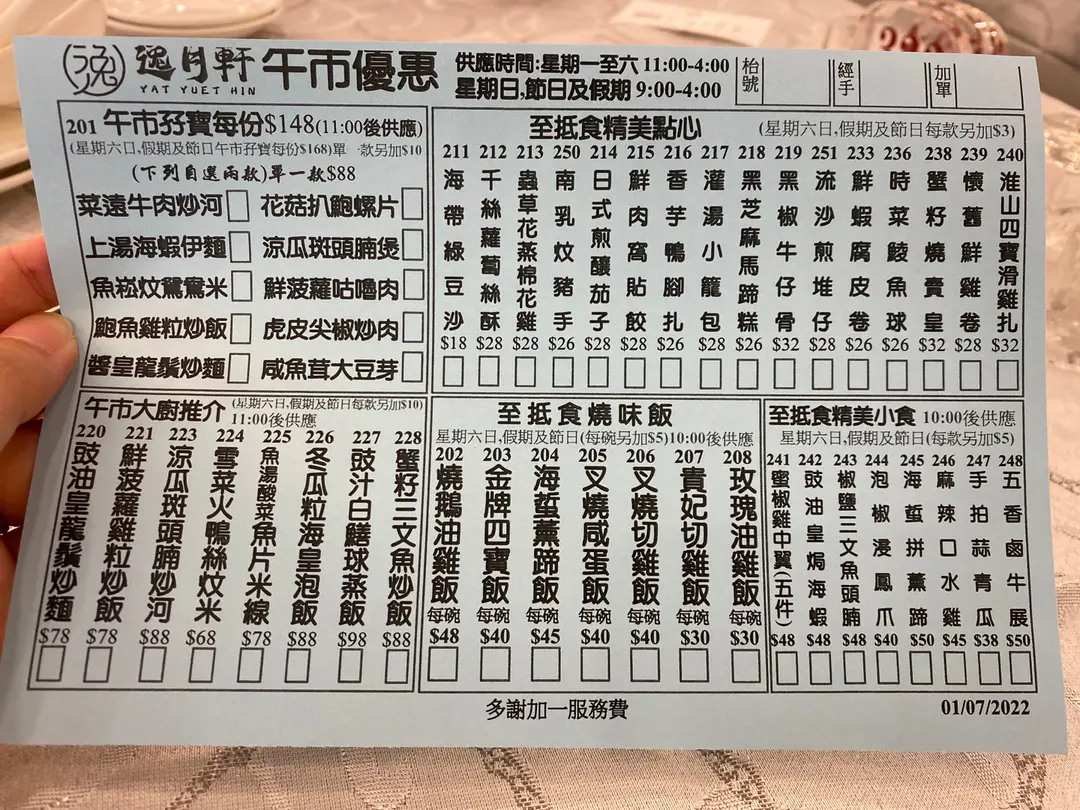 逸月軒
YAT YUET HIN
午市優惠
供應時間:星期一至六 11:00-4:00
星期日,節日及假期 9:00-4:00
枱號
經手
加單
201 午市孖寶每份$148(11:00後供應)
(星期六日,假期及節日午市孖寶每份$168)單一款另加$10
(下列自選兩款)單一款$88
菜遠牛肉炒河
花菇扒鮑螺片
上湯海蝦伊麵
涼瓜斑頭腩煲
魚崧炆鴛鴦米
鮮菠蘿咕嚕肉
鮑魚雞粒炒飯
虎皮尖椒炒肉
醬皇龍鬚炒麵
咸魚茸大豆芽
至抵食精美點心
(星期六日,假期及節日每款另加$3)
211 海帶綠豆沙 $18
212 千絲蘿蔔絲酥 $28
213 蟲草花蒸棉花雞 $28
250 南乳炆豬手 $26
214 日式煎釀茄子 $28
215 鮮肉窩貼餃 $28
216 香芋鴨腳扎 $26
217 灌湯小龍包 $28
218 黑芝麻馬蹄糕 $26
219 黑椒牛仔骨 $32
251 流沙煎堆仔 $28
233 鮮蝦腐皮卷 $26
236 時菜鯪魚球 $26
238 蟹籽燒賣皇 $32
239 懷舊鮮雞卷 $28
240 淮山四寶滑雞扎 $32
午市大廚推介
(星期六日,假期及節日每款另加$10)
11:00後供應
220 豉油皇龍鬚炒麵 $78
221 鮮菠蘿雞粒炒飯 $78
223 涼瓜斑頭腩炒河 $88
224 雪菜火鴨絲炆米 $68
225 魚湯酸菜魚片米線 $78
226 冬瓜粒海皇泡飯 $88
227 豉汁白鱔球蒸飯 $98
228 蟹籽三文魚炒飯 $88
至抵食燒味飯
星期六日,假期及節日(每碗另加$5)10:00後供應
202 燒鵝油雞飯 每碗 $48
203 金牌四寶飯 每碗 $40
204 海蜇薰蹄飯 每碗 $45
205 叉燒咸蛋飯 每碗 $40
206 叉燒切雞飯 每碗 $40
207 貴妃切雞飯 每碗 $30
208 玫瑰油雞飯 每碗 $30
至抵食精美小食 10:00後供應
星期六日,假期及節日(每款另加$5)
241 蜜椒雞中翼(五件) $48
242 豉油皇焗海蝦 $48
243 椒鹽三文魚頭腩 $48
244 泡椒浸鳳爪 $40
245 海蜇拼薰蹄 $50
246 麻辣口水雞 $45
247 手拍蒜青瓜 $38
248 五香鹵牛展 $50
多謝加一服務費
01/07/2022